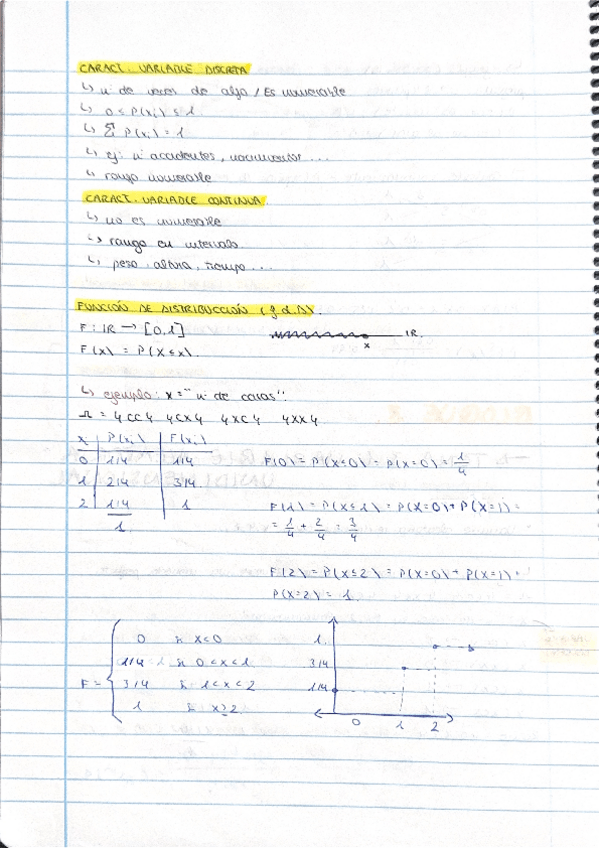 CARACT. VARIABLE DISCRETA
↳ nº de veces de algo / Es numerable
↳ 0 ≤ P(xᵢ) ≤ 1
↳ Σ P(xᵢ) = 1
↳ ej: nº accidentes, nacimientos ...
↳ rango numerable
CARACT. VARIABLE CONTINUA
↳ no es numerable
↳ rango en intervalo
↳ peso, altura, tiempo ...
FUNCIÓN DE DISTRIBUCCIÓN (f.d.D).
F: IR → [0,1] IR.
F(x) = P(X ≤ x). x
↳ ejemplo: x = "nº de caras".
Ω = {CC} {CX} {XC} {XX}
xᵢ P(xᵢ) F(xᵢ)
0 1/4 1/4 F(0) = P(X≤0) = P(X=0) = 1/4
1 2/4 3/4
2 1/4 1 F(1) = P(X≤1) = P(X=0) + P(X=1) =
1. = 1/4 + 2/4 = 3/4
F(2) = P(X≤2) = P(X=0) + P(X=1) +
P(X=2) = 1.
0 si X<0 1
1/4 si 0<x<1 3/4
F = 3/4 si 1<x<2 1/4
1 si X≥2
0 1 2